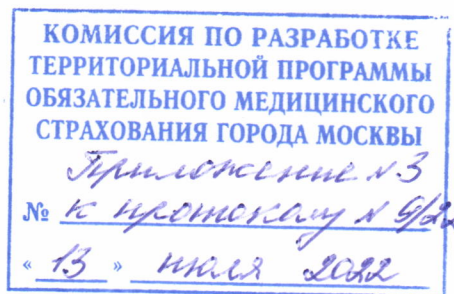 КОМИССИЯ ПО РАЗРАБОТКЕ
ТЕРРИТОРИАЛЬНОЙ ПРОГРАММЫ
ОБЯЗАТЕЛЬНОГО МЕДИЦИНСКОГО
СТРАХОВАНИЯ ГОРОДА МОСКВЫ
Приложение №3
№ к протоколу № 9/22
« 13 » июля 2022